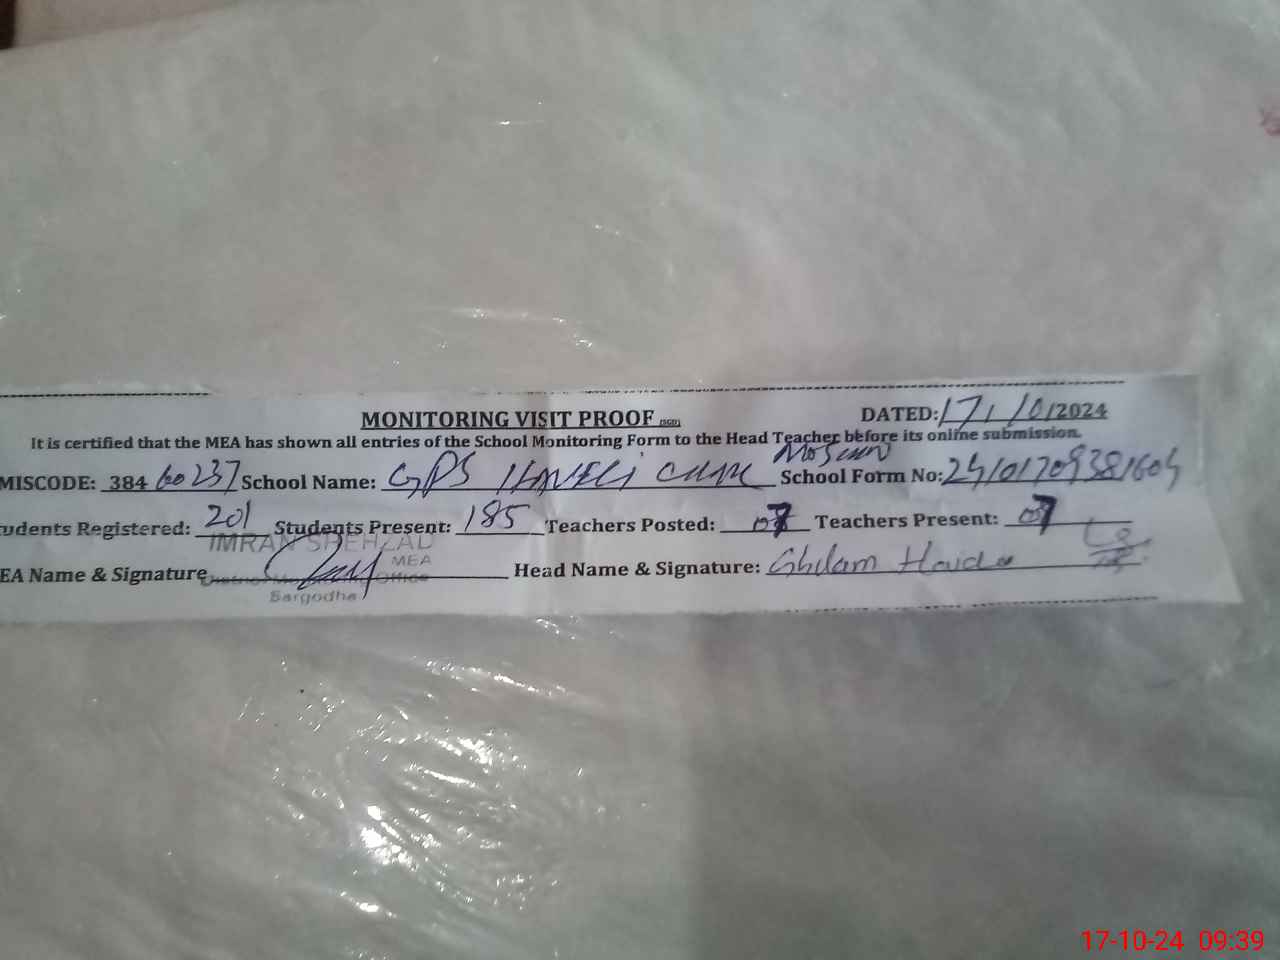 MONITORING VISIT PROOF (SGD) DATED: 17/10/2024
It is certified that the MEA has shown all entries of the School Monitoring Form to the Head Teacher before its online submission.
MISCODE: 384 60237 School Name: GPS HAVELI School Form No: 
udents Registered: 201 Students Present: 185 Teachers Posted: 07 Teachers Present: 07
IMRAN SHEHZAD
MEA
EA Name & Signature District Monitoring Office Head Name & Signature: Ghulam Haider
Sargodha
17-10-24 09:39